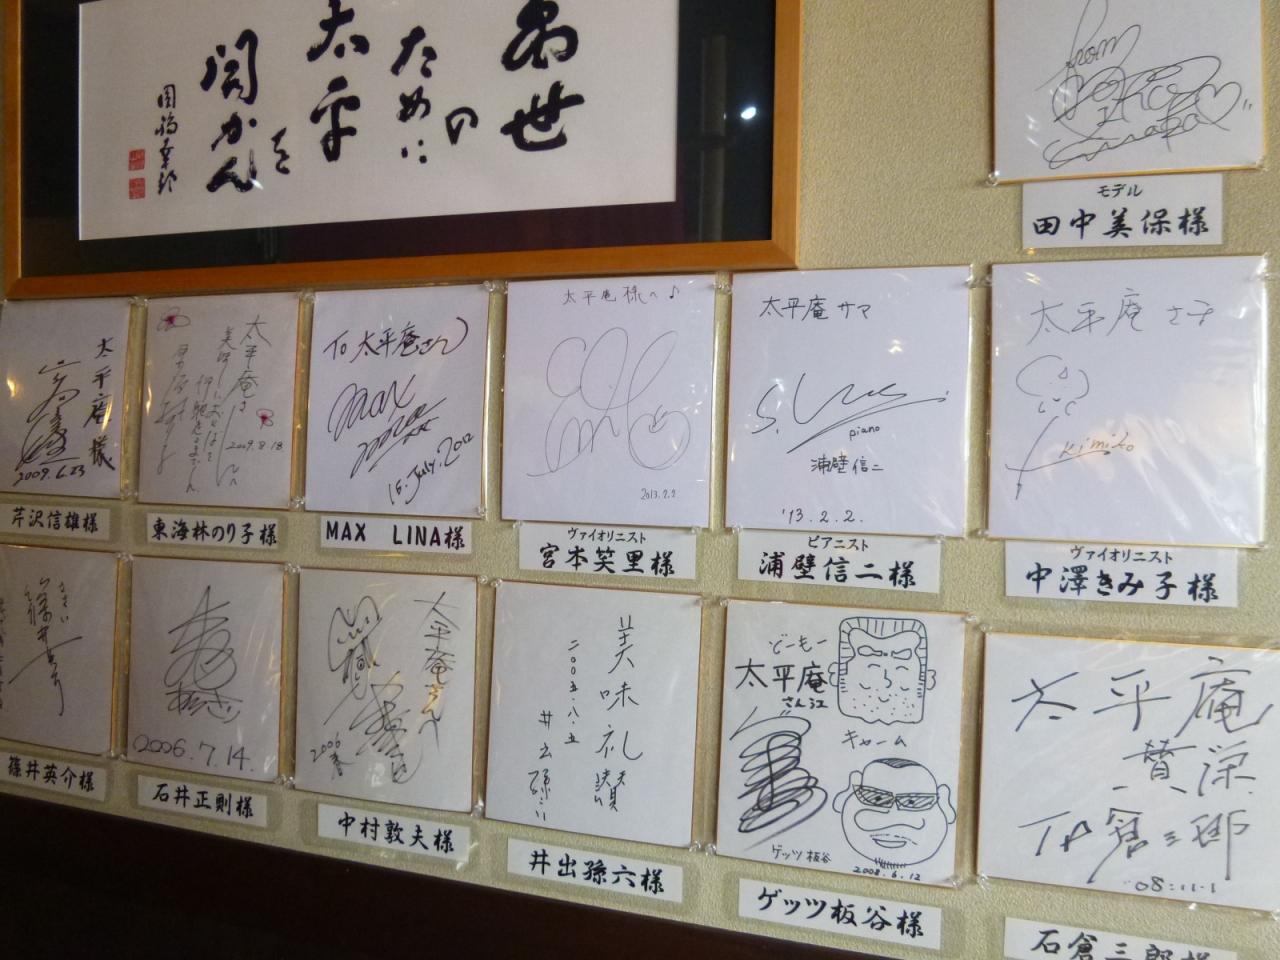 万世
の
ために
太平
を
開かん
from
モデル
田中美保様
太平庵様
2009.6.23
芹沢信雄様
太平庵さんへ
2009.8.18
東海林のり子様
To 太平庵さん
max
15. July. 2012
MAX LINA様
太平庵様へ♪
2013.2.2
ヴァイオリニスト
宮本笑里様
太平庵サマ
piano
浦壁信二
'13.2.2.
ピアニスト
浦壁信二様
太平庵さま
Kimiko
ヴァイオリニスト
中澤きみ子様
篠井英介様
2006.7.14.
石井正則様
太平庵さん
2006
中村敦夫様
美味礼讃
二〇〇五.八.五
井出孫六
井出孫六様
どーもー
太平庵
さん江
キャーム
ゲッツ板谷
2008.6.12
ゲッツ板谷様
太平庵
賛江
石倉三郎
'08:11.1
石倉三郎様